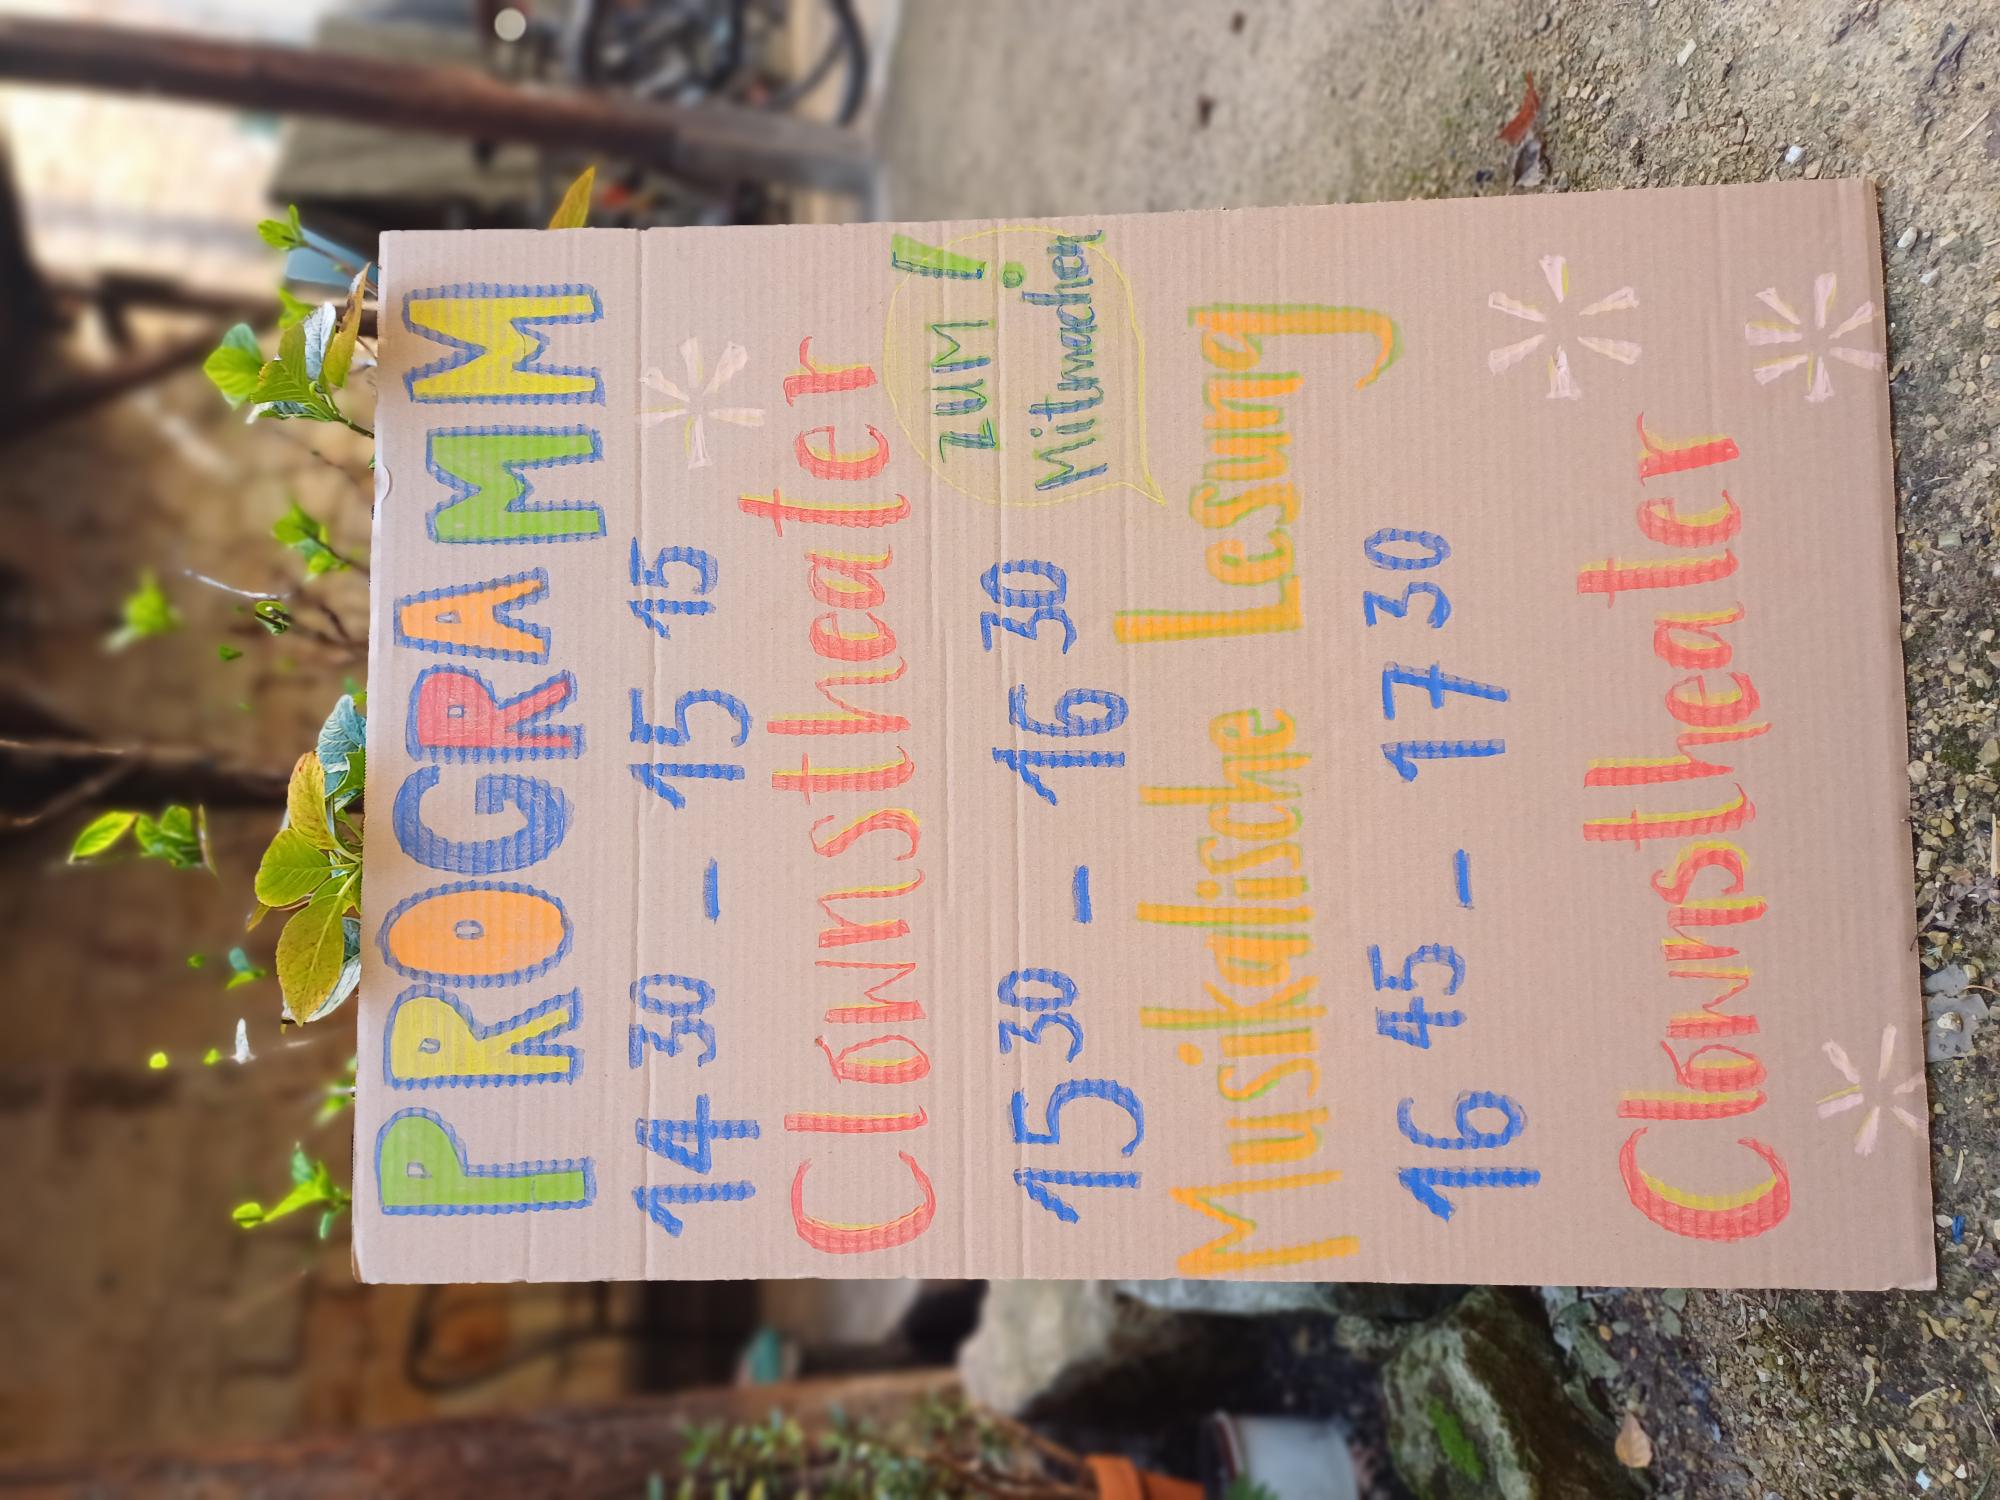 PROGRAMM
14 30 - 15 15
Clownstheater
zum
Mitmachen!
15 30 - 16 30
Musikalische Lesung
16 45 - 17 30
Clownstheater